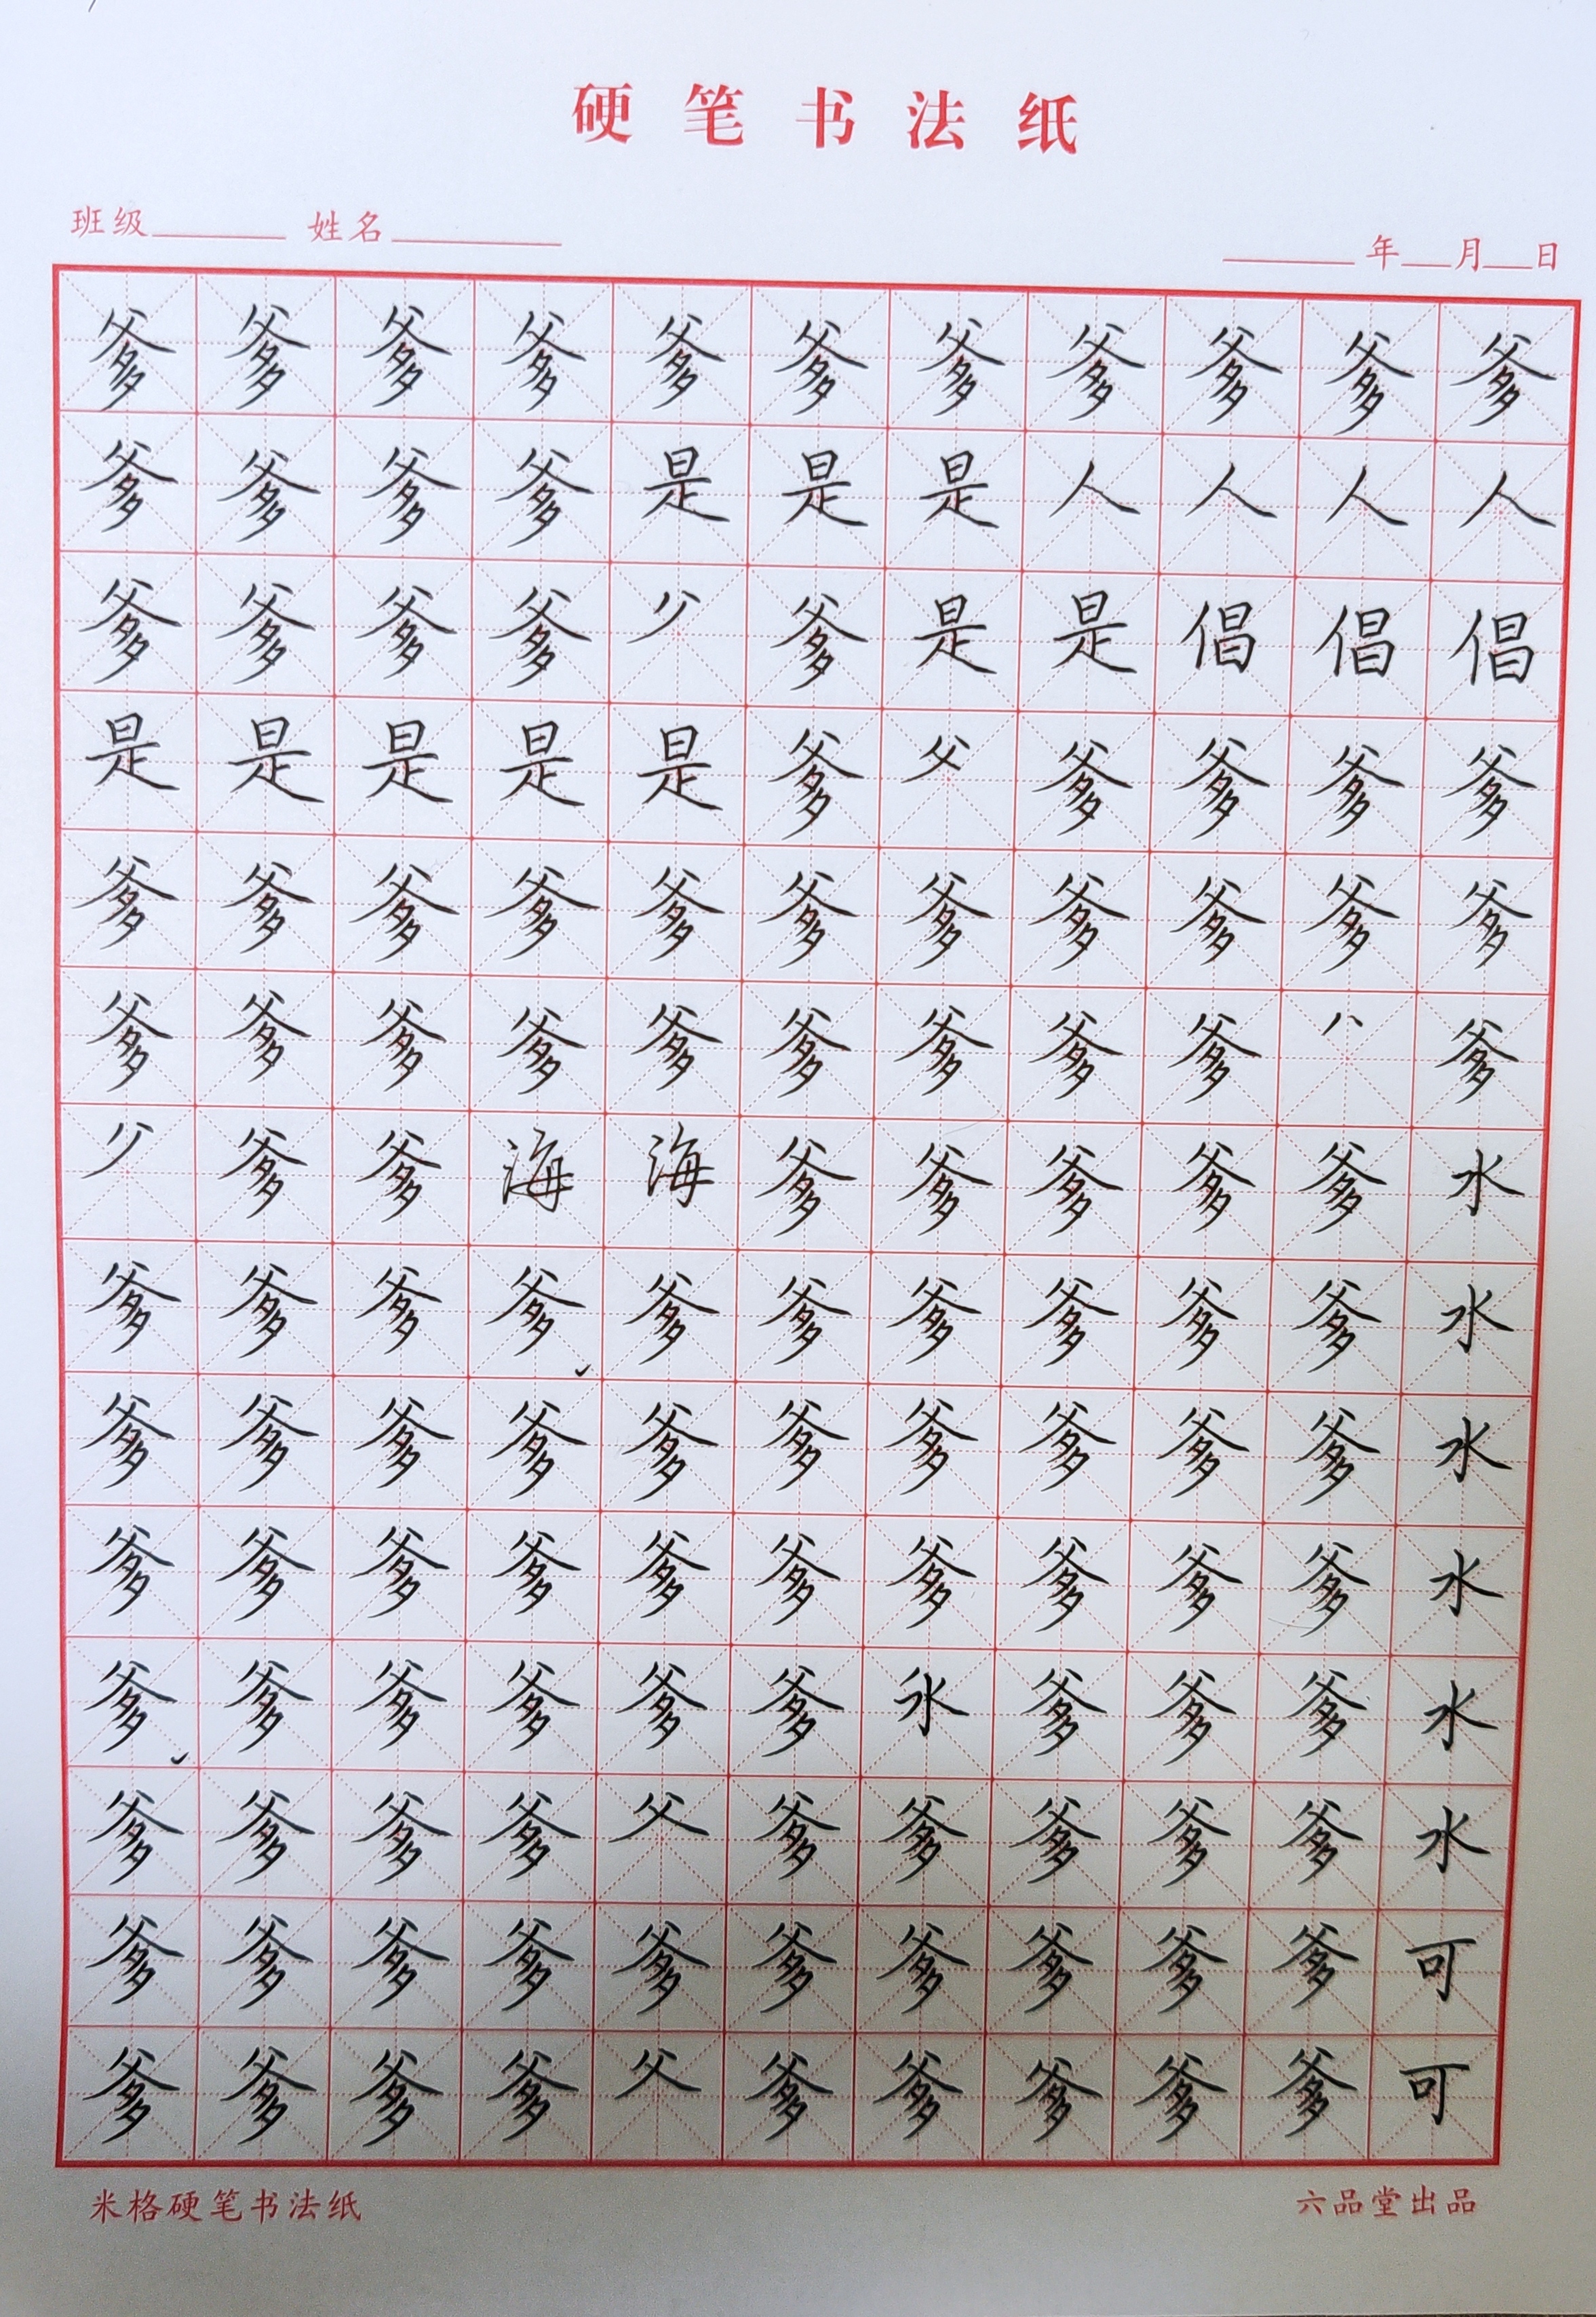 硬笔书法纸
班级 姓名 年 月 日
爹爹爹爹爹爹爹爹爹爹爹
爹爹爹爹是是是人人人人
爹爹爹爹爹是是倡倡倡
是是是是是爹父爹爹爹爹
爹爹爹爹爹爹爹爹爹爹爹
爹爹爹爹爹爹爹爹爹八爹
爹爹海海爹爹爹爹爹水
爹爹爹爹爹爹爹爹爹爹水
爹爹爹爹爹爹爹爹爹爹水
爹爹爹爹爹爹爹爹爹爹水
爹爹爹爹爹爹水爹爹爹水
爹爹爹爹父爹爹爹爹爹水
爹爹爹爹爹爹爹爹爹爹可
爹爹爹爹父爹爹爹爹爹可
米格硬笔书法纸 六品堂出品